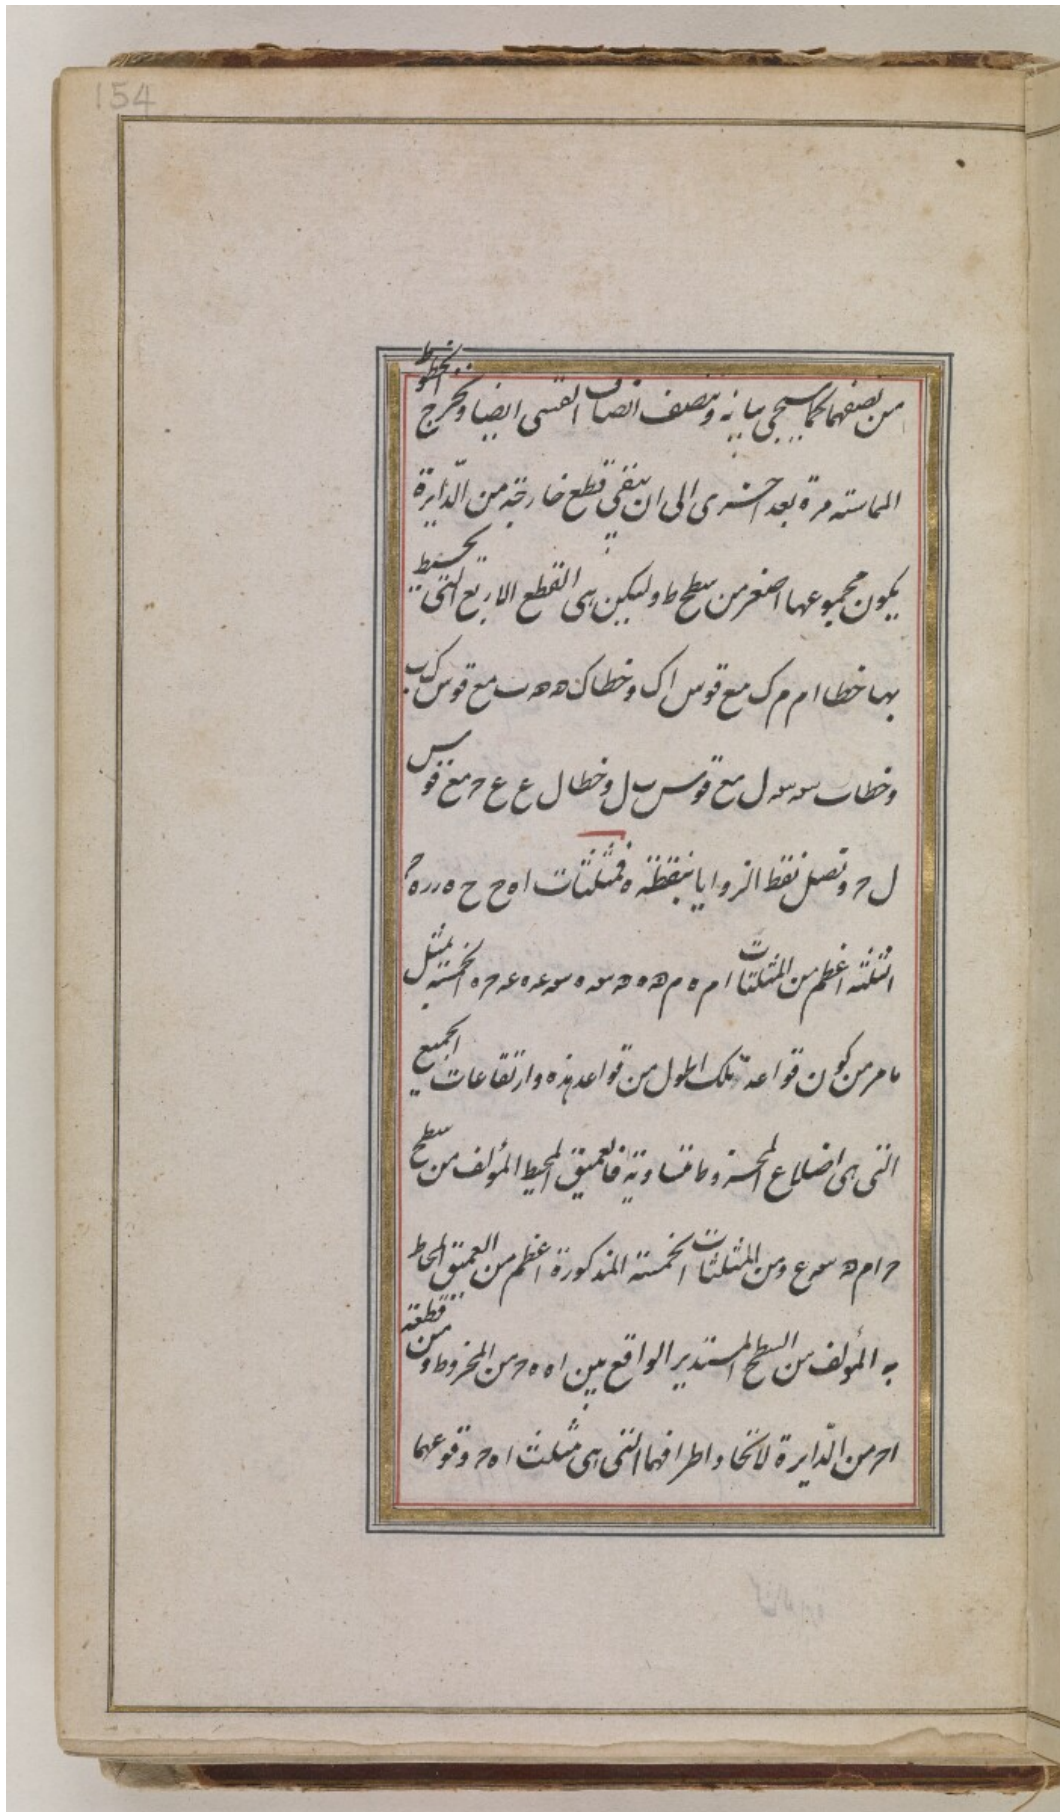 154
من نصفهما كما سيجي بيانه وننصف انصاف القسى ايضا ونخرج الخطوط
المماسته مرة بعد اخرى الى ان يبقى قطع خارجة من الدّايرة
يكون مجموعها اصغر من سطح ط وليكن هى القطع الاربع التى يحيط
بها خطا ام م ك مع قوس اك وخطا ك ںه ںه ب مع قوس ك ب
وخطا ب سه سه ل مع قوس ب ل وخطا ل ع ع ح مع قوس
ل ح ونصل نقط الزوايا بنقطة ه فمثلثات
الثلثة اعظم من المثلثات ام ه م ںه ه ںه سه ه سه عه ه عه ح ه الخمسة بمثل
ما مر من كون قواعد تلك اطول من قواعد هذه وارتفاعات الجميع
التى هى اضلاع المخروط متساوية فالعميق المحيط المؤلف من سطح
ح ام ںه سه ع ومن المثلثات الخمسة المذكورة اعظم من العميق المحاط
به المؤلف من السطح المستدير الواقع بين اه ه ح من المخروط ومن قطعة
اح من الدّايرة لاتحاد اطرافهما التى هى مثلث اه ح وقوعهما